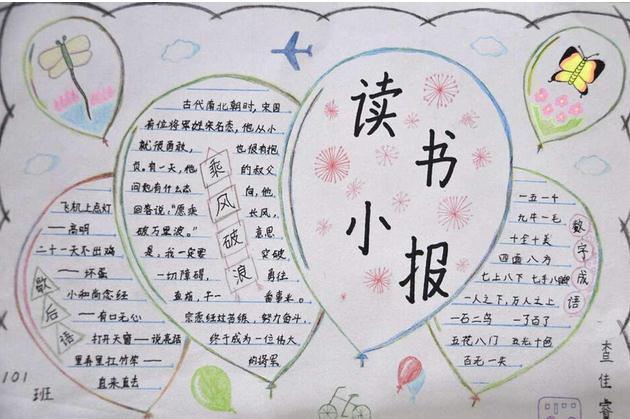 读
书
小
报
歇后语
飞机上点灯
——高明
二十一天不出鸡
——坏蛋
小和尚念经
——有口无心
打开天窗——说亮话
里弄里扛竹竿——
直来直去
乘风破浪
古代南北朝时,宋国
有位将军姓宗名悫,他从小
就很勇敢, 也很有抱
负,有一天,他 的叔父
问他有什么志 向,他
回答说:"愿乘 长风,
破万里浪。" 意思
是,我一定要 突破
一切障碍, 勇往
直前,干一 番事业。
宗悫经过苦练,努力奋斗,
终于成为一位伟大
的将军
数字成语
一五一十
九牛一毛
十全十美
四面八方
七上八下 七手八脚
一人之下,万人之上
一石二鸟 一了百了
五花八门 五光十色
百无一失
101
班
查佳睿